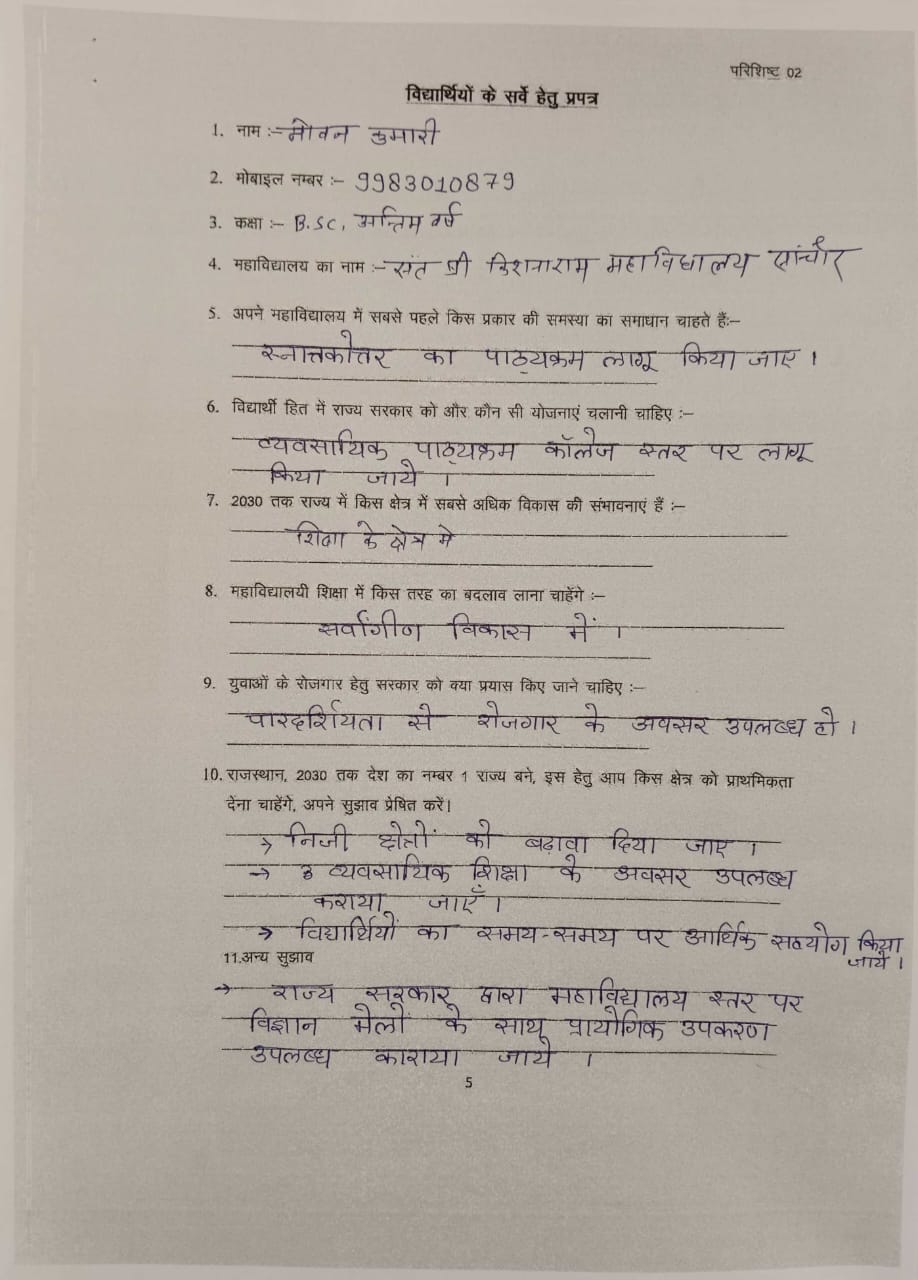 परिशिष्ट 02
विद्यार्थियों के सर्वे हेतु प्रपत्र
1. नाम :- मोवन कुमारी
2. मोबाइल नम्बर :- 9983010879
3. कक्षा :- B.SC, अन्तिम वर्ष
4. महाविद्यालय का नाम :- संत श्री किशनाराम महाविद्यालय सांचौर
5. अपने महाविद्यालय में सबसे पहले किस प्रकार की समस्या का समाधान चाहते हैं:-
स्नात्तकोत्तर का पाठ्यक्रम लागू किया जाए ।
6. विद्यार्थी हित में राज्य सरकार को और कौन सी योजनाएं चलानी चाहिए :-
व्यवसायिक पाठ्यक्रम कॉलेज स्तर पर लागू
किया जाये ।
7. 2030 तक राज्य में किस क्षेत्र में सबसे अधिक विकास की संभावनाएं हैं :-
शिक्षा के क्षेत्र मे
8. महाविद्यालयी शिक्षा में किस तरह का बदलाव लाना चाहेंगे :-
सर्वांगीण विकास में ।
9. युवाओं के रोजगार हेतु सरकार को क्या प्रयास किए जाने चाहिए :-
पारदर्शियता से रोजगार के अवसर उपलब्ध हो ।
10. राजस्थान, 2030 तक देश का नम्बर 1 राज्य बने, इस हेतु आप किस क्षेत्र को प्राथमिकता
देंना चाहेंगे, अपने सुझाव प्रेषित करें।
→ निजी क्षेत्रों को बढ़ावा दिया जाए ।
→ व्यवसायिक शिक्षा के अवसर उपलब्ध
कराया जाएँ ।
→ विद्यार्थियों का समय-समय पर आर्थिक सहयोग किया
जाये ।
11.अन्य सुझाव
→ राज्य सरकार द्वारा महाविद्यालय स्तर पर
विज्ञान मेलों के साथ प्रायोगिक उपकरण
उपलब्ध काराया जाये ।
5